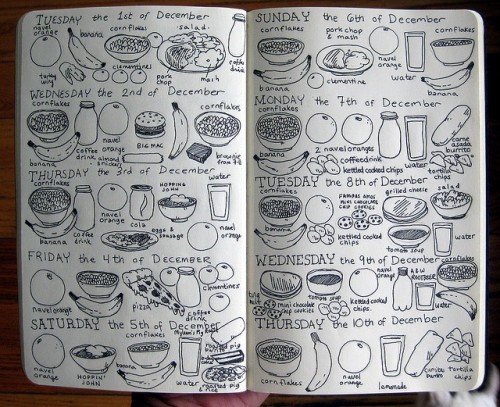 TUESDAY the 1st of December
navel orange
banana
cornflakes
salad
coffee drink
clementine
pork chop
mash
WEDNESDAY the 2nd of December
cornflakes
cornflakes
banana
coffee drink
navel orange
almond snickers
BIG MAC
THURSDAY the 3rd of December
water
cornflakes
HOPPING JOHN
banana
coffee drink
navel orange
cola
eggs & sausage
navel orange
FRIDAY the 4th of December
navel orange
banana
pizza
coffee drink
clementines
SATURDAY the 5th of December
cornflakes
navel orange
HOPPIN' JOHN
banana
water
roasted pig & rice
SUNDAY the 6th of December
cornflakes
pork chop & mash
cornflakes
navel orange
banana
clementine
water
banana
MONDAY the 7th of December
cornflakes
carne asada burrito
banana
2 navel oranges
coffee drink
kettled cooked chips
water
tortilla chips
TUESDAY the 8th of December
cornflakes
FAMOUS AMOS MINI CHOCOLATE CHIP COOKIES
grilled cheese
salad
banana
kettled cooked chips
tomato soup
water
WEDNESDAY the 9th of December
navel orange
A & W ROOTBEER
cornflakes
mini chocolate chip cookies
tomato soup
kettled cooked chips
water
banana
THURSDAY the 10th of December
cornflakes
navel orange
lemonade
tortilla chips